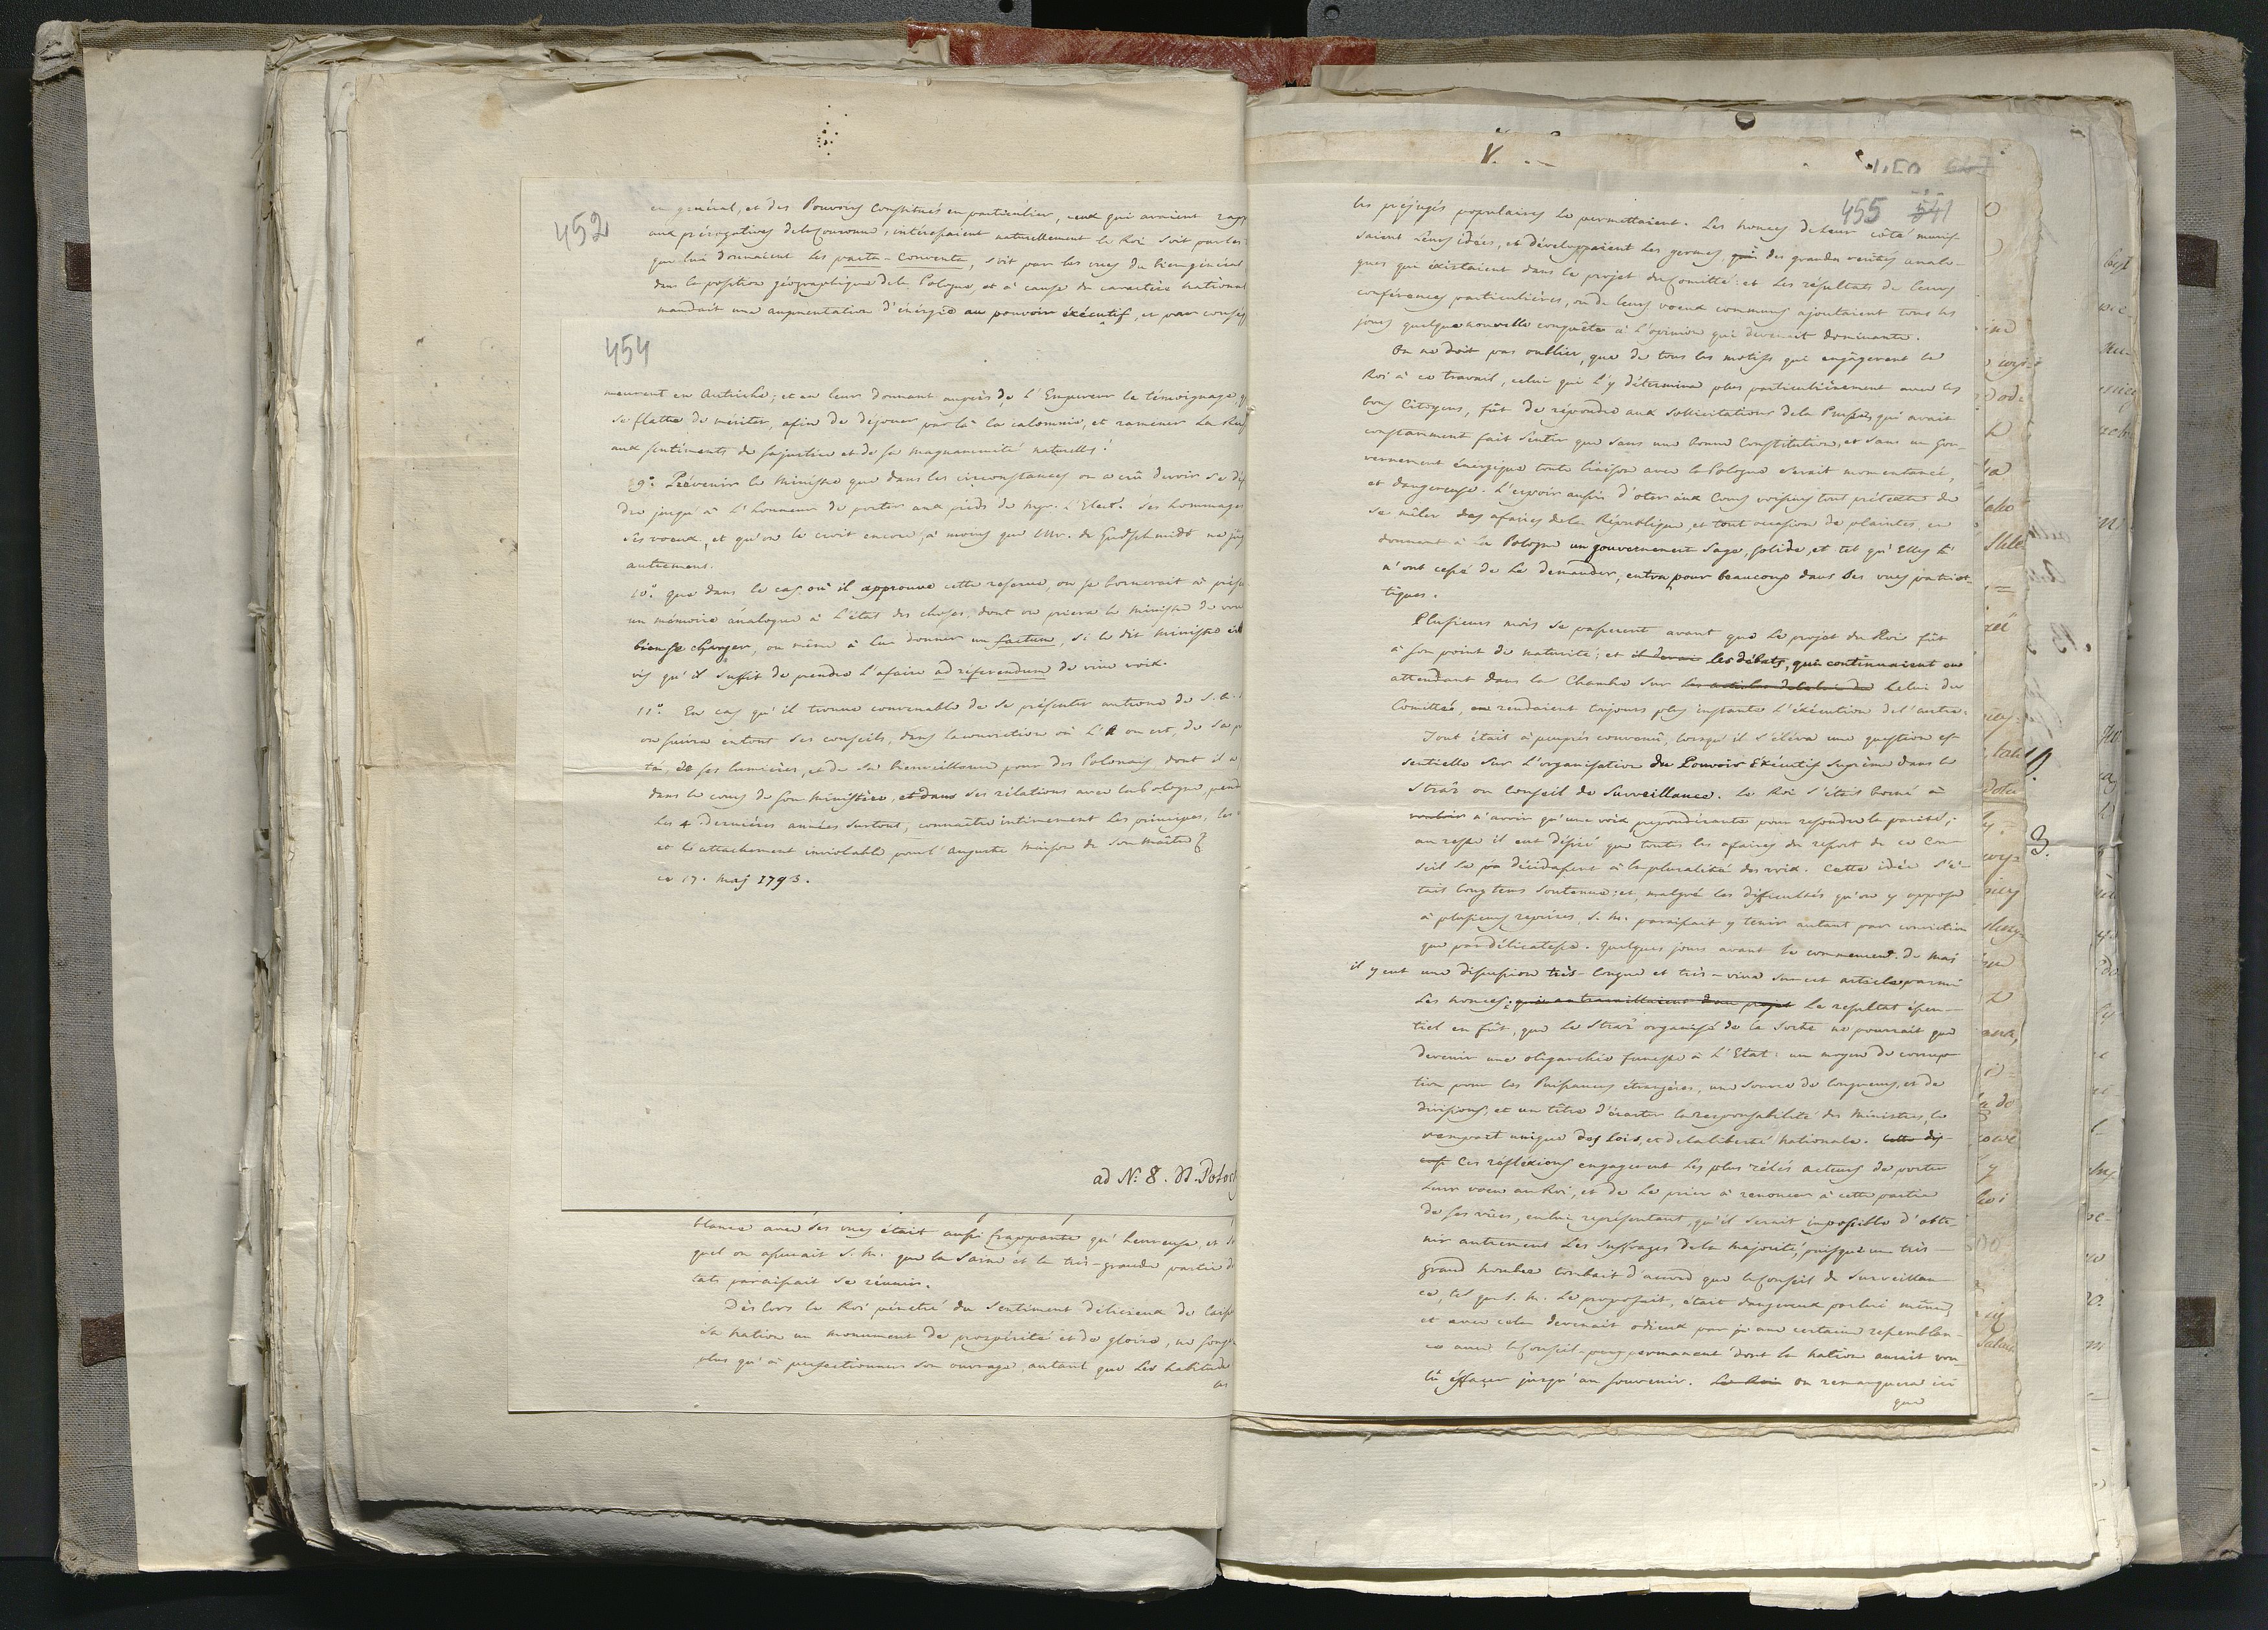 452
en général, et des Pouvoirs Constitués en particulier, ceux qui avaient rapp
aux prérogatives de la Couronne, intéressaient naturellement le Roi soit par les
que lui donnaient les pacta-conventa, soit par les vues du bien général
dans la position géographique de la Pologne, et à cause du caractère national
mandait une augmentation d'énergie au pouvoir éxécutif, et par conséq
454
meurent en Autriche; et en leur donnant auprès de l'Empereur le témoignage q
se flatte de mériter, afin de déjouer par là la calomnie, et ramener la Rus
aux sentiments de sa justice et de sa magnanimité naturelle!
9° Prévenir le Ministre que dans les circonstances on a crû devoir se dé
dre jusqu'à l'honneur de porter aux pieds de Mgr. l'Elect. ses hommages
ses voeux, et qu'on le croit encore, à moins que Mr. de Gudschmidt ne jug
autrement.
10° que dans le cas où il approuve cette reserve, on se bornerait à prése
un mémoire analogue à l'état des choses, dont on priera le Ministre de vou
bien se charger, ou même à lui donner un factum, si le dit Ministre est
vis qu'il suffit de prendre l'afaire ad referendum de vive voix.
11° En cas qu'il trouve convenable de se présenter au trone de S. A.
on suivra en tout ses conseils, dans la conviction où l'on est, de sa p
té, de ses lumières, et de sa bienveillance pour des Polonais, dont il a
dans le cours de son Ministère, et dans ses rélations avec la Pologne, pend
les 4 dernières années surtout, connaître intimement les principes, les
et l'attachement inviolable pour l'auguste Maison de son Maître
ce 17. Maj 1793.
ad N: 8. Potock
blance avec ses vues était aussi frappante qu'heureuse, et
quel on assurait S. M. que la saine et la très-grande partie d
tats paraissait se réunir.
Dès lors le Roi pénétré du sentiment délicieux de laiss
à sa nation un monument de prospérité et de gloire, ne songe
plus qu'à perfectionner son ouvrage, autant que les habitude
les
V.
455 541
les préjugés populaires le permettaient. Les nonces de leur côté muris-
saient leurs idées, et dévelopaient les germes, des grandes verités analo-
gues qui éxistaient dans le projet du Comitté: et les résultats de leurs
conférences particulières, ou de leurs voeux communs ajoutaient tous les
jours quelque nouvelle conquête à l'opinion qui devenait dominante.
On ne doit pas oublier, que de tous les motifs qui engagerent le
Roi à ce travail, celui qui l'y détermina plus particulièrement avec les
bons Citoyens, fût de répondre aux sollicitations de la Prusse, qui avait
constamment fait sentir que sans une bonne Constitution, et sans un gou-
vernement énergique toute liaison avec la Pologne serait momentanée,
et dangereuse. L'espoir aussi d'oter aux Cours voisines tout prétexte de
se mêler des afaires de la République, et tout ocasion de plaintes, en
donnant à la Pologne un gouvernement sage, solide, et tel qu'Elles
n'ont cessé de le demander, entra pour beaucoup dans ses vues patrio-
tiques.
Plusieurs mois se passerent avant que le projet du Roi fût
à son point de maturité; et il devai les débats, qui continuaient en
attendant dans la Chambre sur les articles de celui de celui du
Comitté, rendaient toujours plus instante l'éxécution de l'autre.
Tout était à peuprès convenû, lorsqu'il s'éleva une question es-
sentielle sur l'organisation du Pouvoir Éxécutif suprême dans le
Straż ou Conseil de Surveillance. Le Roi s'était borné à
vouloir n'avoir qu'une voix preponderante pour resoudre la parité;
au reste il eut désiré que toutes les afaires du resort de ce Con-
seil se décidassent à la pluralité des voix. Cette idée s'é-
tait longtems soutenue; et, malgré les difficultés qu'on y opposa
à plusieurs reprises, S. M. paraissait y tenir autant par conviction
que par délicatesse. Quelques jours avant le commencemt. de Mai
il y eut une discussion très-longue et très-vive sur cet article parmi
les nonces, qui en travaillaient dans projet Le resultat éssen-
tiel en fût, que le Straż organisé de la sorte ne pourrait que
devenir une oligarchie funeste à l'Etat: un moyen de corrup-
tion pour les Puissances étrangéres, une source de longueurs, et de
divisions, et un titre d'écarter la responsabilité des Ministres, le
rempart unique des lois, et de la liberté nationale. Cette dis-
cuss Ces réfléxions engagerent les plus zélés acteurs de porter
leur voeu au Roi, et de le prier à renoncer à cette partie
de ses vües, en lui représentant, qu'il serait impossible d'obte-
nir autrement les suffrages de la majorité, puisque un très-
grand nombre tombait d'acord que le Conseil de Surveillan-
ce, tel que S. M. le proposait, était dangereux par lui même,
et avec cela devenait odieux par une certaine ressemblan-
ce avec le Conseil permanent dont la nation aurait vou-
lû éffacer jusqu'au souvenir. Le Roi on remarquera ici
que